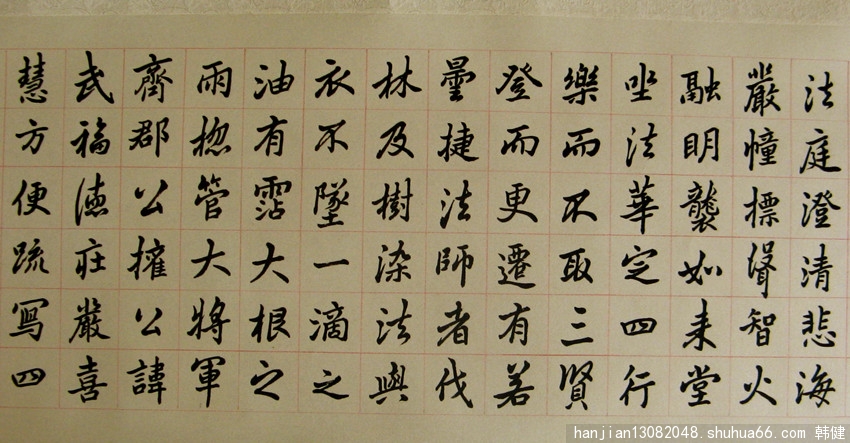 法庭澄清悲海
嚴幢標聳智火
融明襲如来堂
坐法華定四行
樂而不取三賢
登而更遷有若
曇捷法師者伐
林及樹染法與
衣不墜一滴之
油有霑大根之
雨揔管大將軍
齊郡公權公諱
武福德莊嚴喜
慧方便疏寫四
hanjian13082048.shuhua66.com 韩健